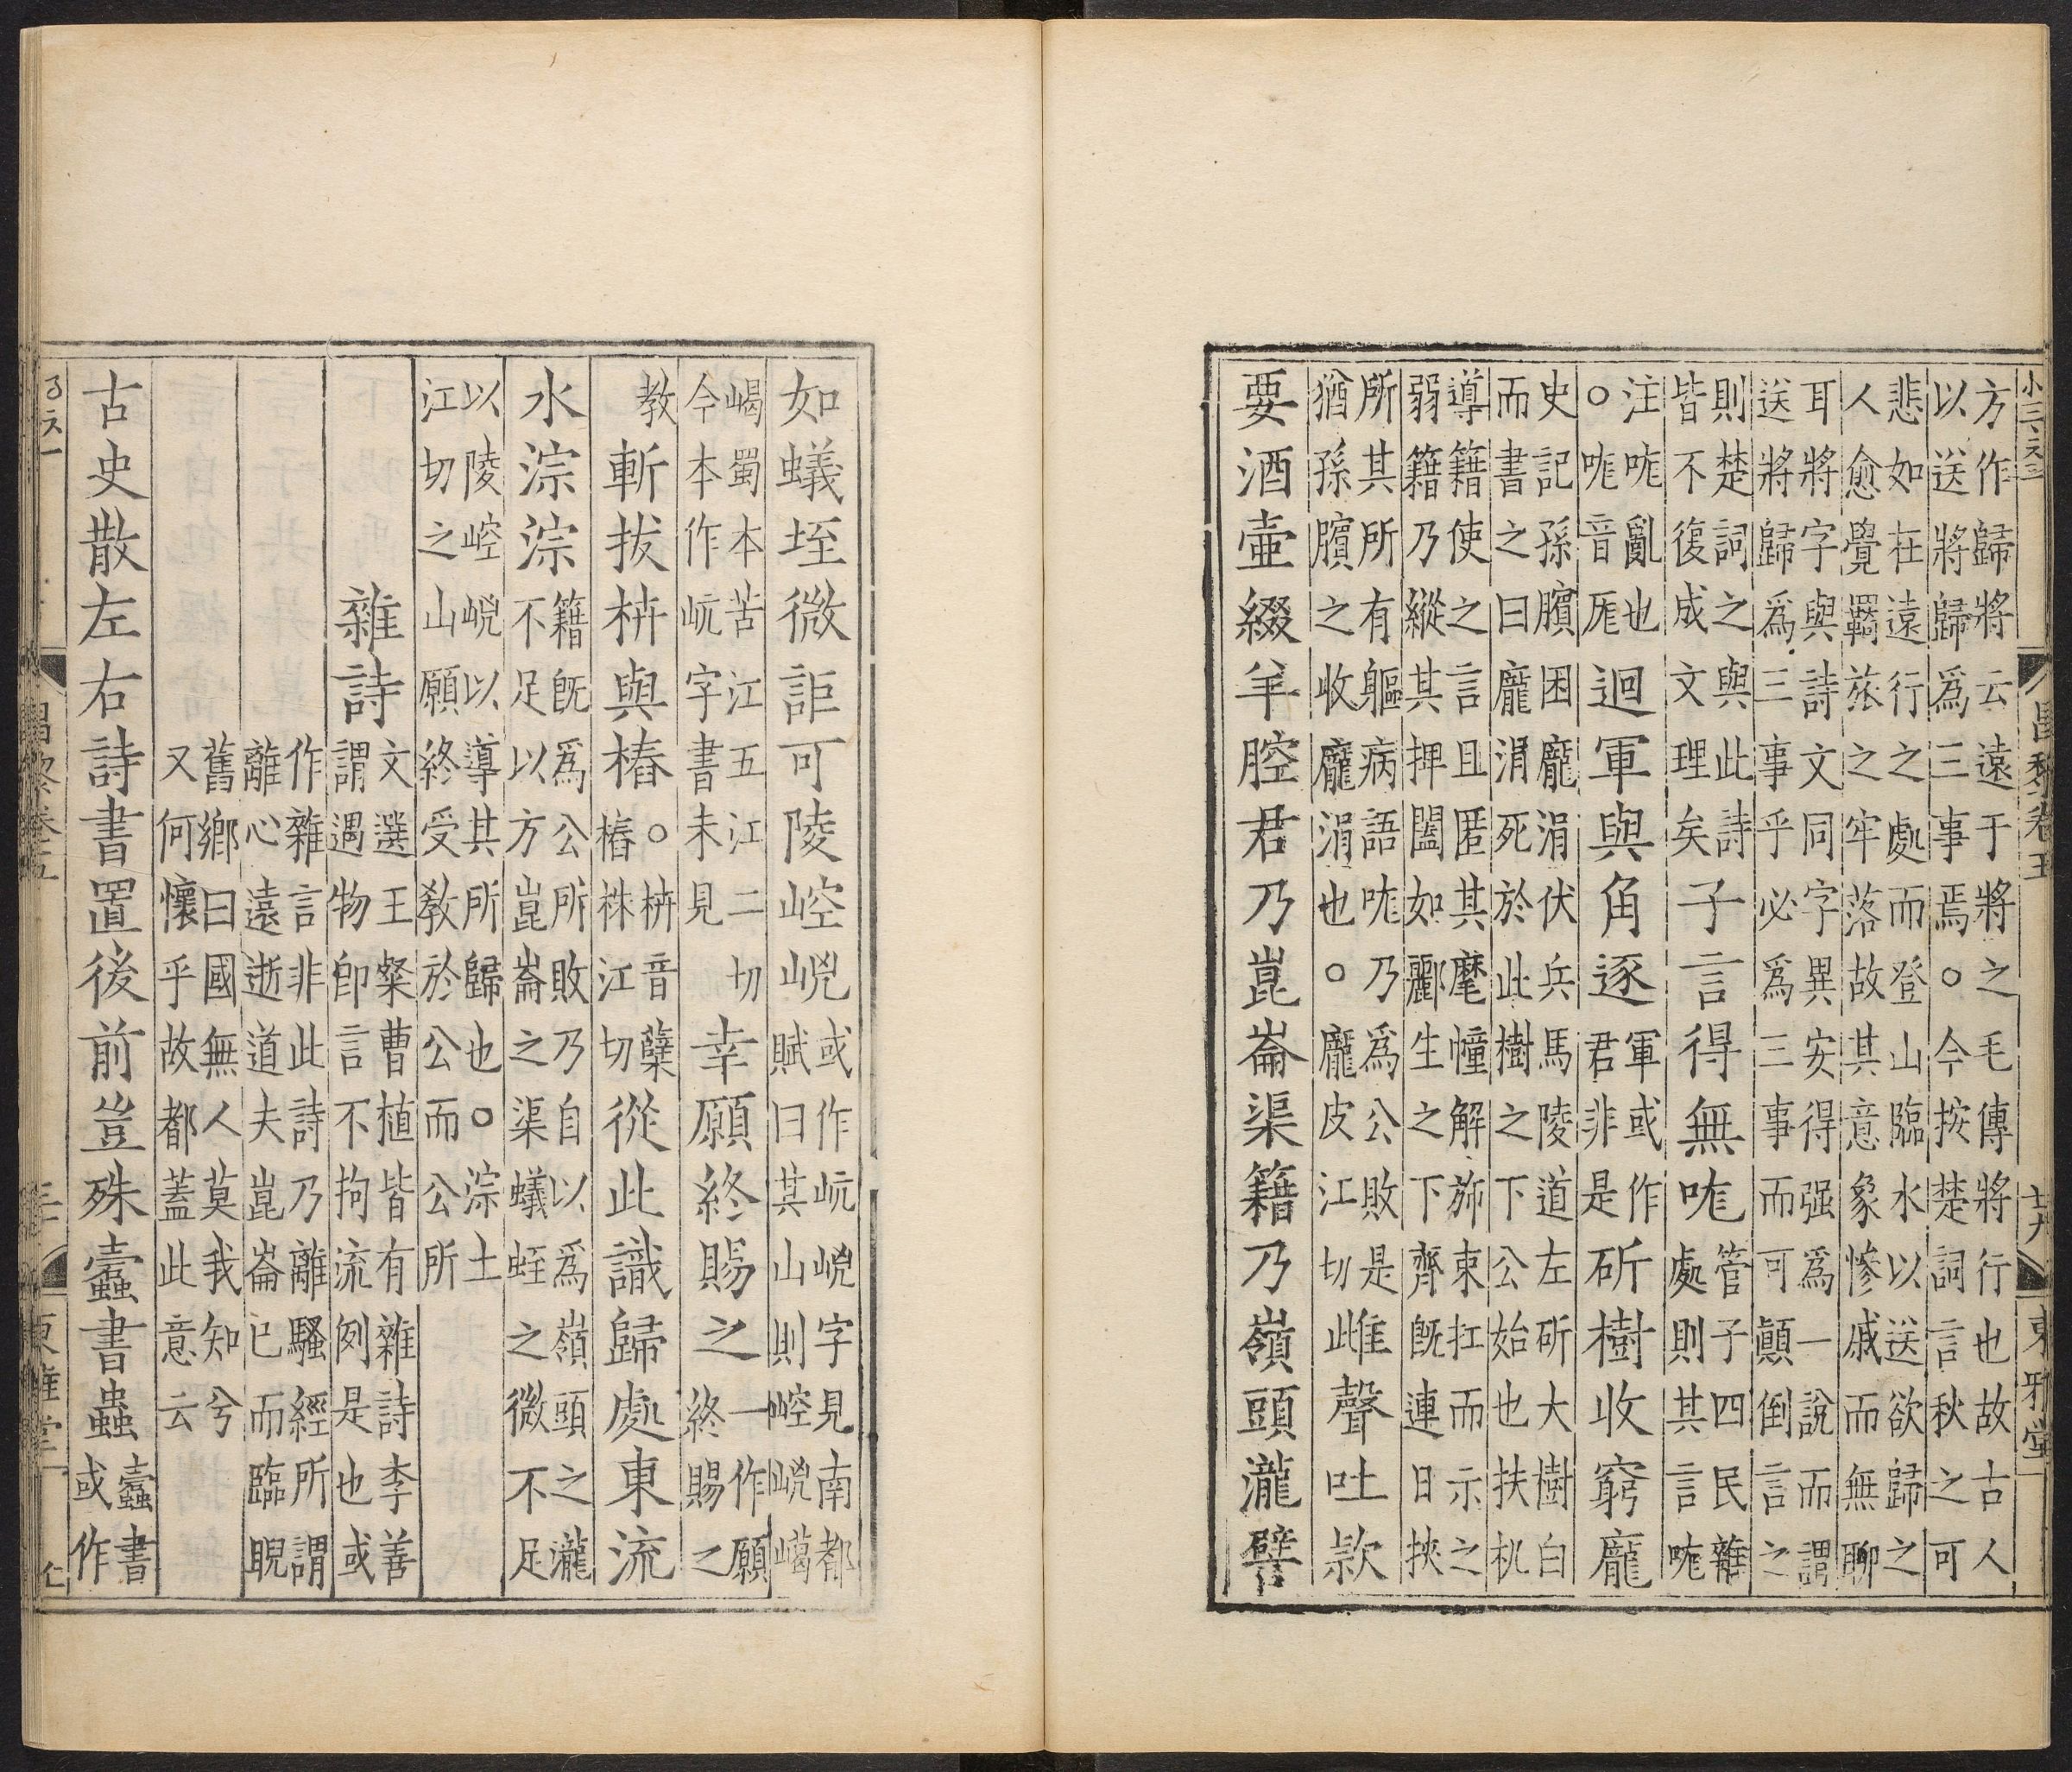 小三
昌黎卷五
廿九
東雅堂
方作歸將云遠于將之毛傳將行也故古人
以送將歸爲三事焉○今按楚詞言秋之可
悲如在遠行之處而登山臨水以送欲歸之
人愈覺羇旅之牢落故其意象慘戚而無聊
耳將將字與詩文同字異安得强爲一說而謂
送將歸爲三事乎必爲三事而可顚倒言之
則楚詞之與此詩
皆不復成文理矣
子言得無哤
管子四民雜
處則其言哤
注哤亂也
○哤音厖
迴軍與角逐
軍或作
君非是
斫樹收窮龐
史記孫臏困龐涓伏兵馬陵道左斫大樹白
而書之曰龐涓死於此樹之下公始也扶杌
導籍使之言且匿其麾幢解斾束扛而示之
弱籍乃縱其捭闔如酈生之下齊旣連日挾
所其所有軀病語哤乃爲公敗是
猶孫臏之收龐涓也○龐皮江切
雌聲吐款
要酒壷綴羊腔君乃崑崙渠籍乃嶺頭瀧譬
如蟻垤微詎可陵崆㟅
或作岏㟅字見南都
賦曰其山則崆㟅嶱
嵑蜀本苦江五江二切
今本作岏字書未見
幸願終賜之
一作願
終賜之
教
斬拔枿與樁
○枿音櫱
樁株江切
從此識歸處東流
水淙淙
籍旣爲公所敗乃自以爲嶺頭之瀧
不足以方崑崙之渠蟻蛭之微不足
以陵崆㟅以導其所歸也○淙土
江切之山願終受敎於公而公所
雜詩
文選王粲曹植皆有雜詩李善
謂遇物卽言不拘流例是也或
作雜言非此詩乃離騷經所謂
離心遠逝道夫崑崙已而臨睨
舊鄉曰國無人莫我知兮
又何懷乎故都蓋此意云
古史散左右詩書置後前豈殊蠧書蟲
蠧書
或作
昌黎卷五
三十
東雅堂